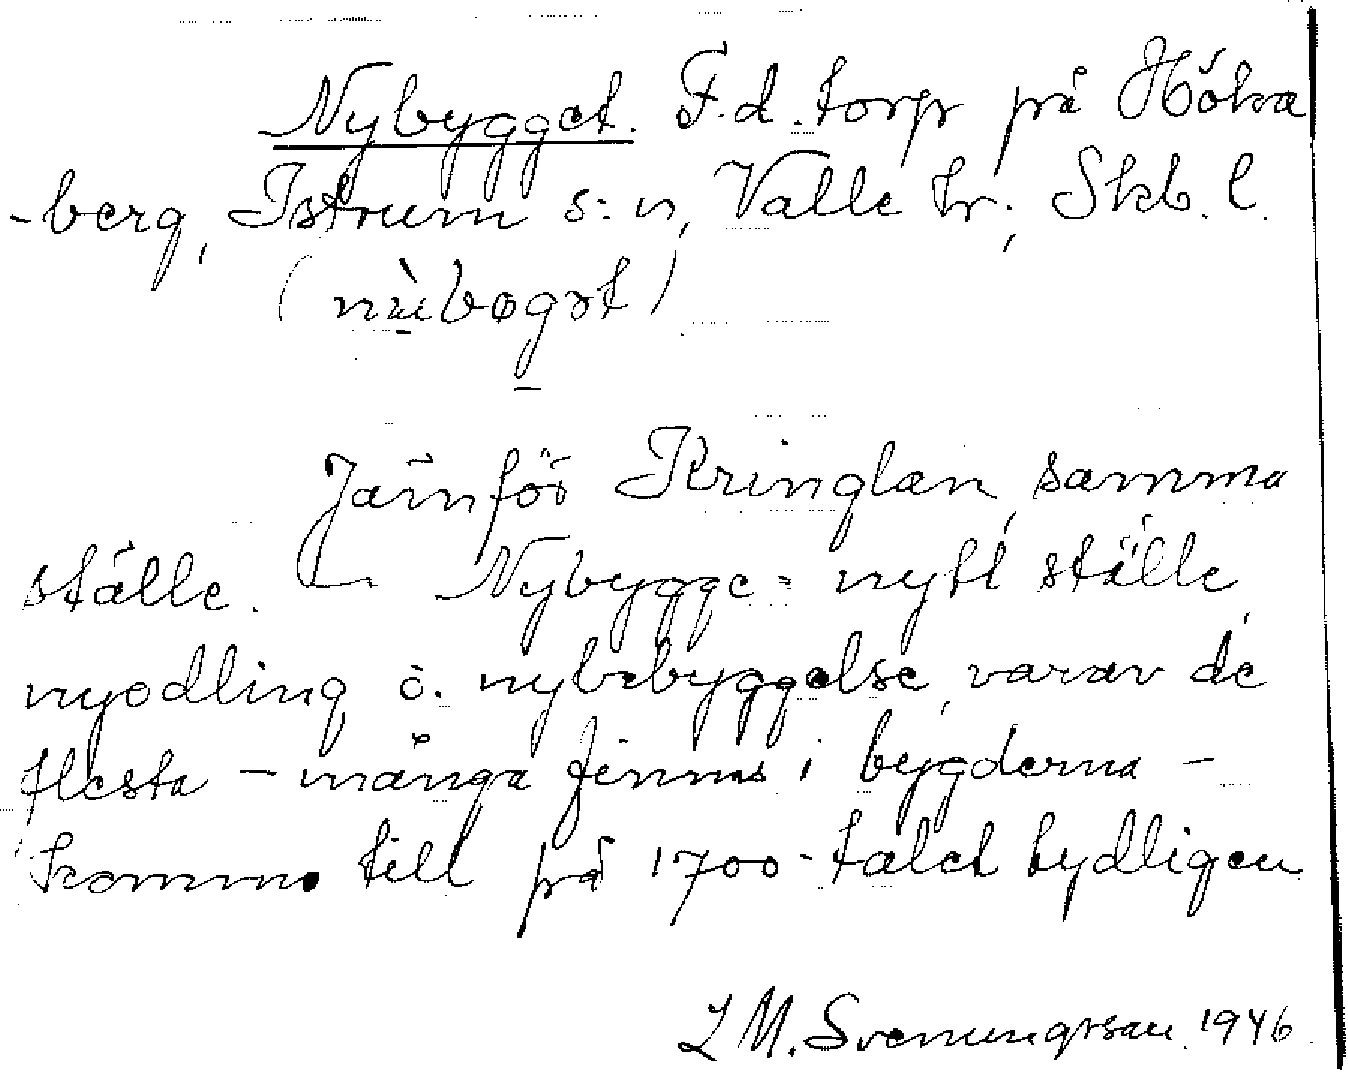 Nybygget. F.d. torp på Höka
-berg, Istrum s:n, Valle hr, Skb. l.
Jämför Kringlan, samma
ställe. Nybygge = nytt ställe,
nyodling o. nybebyggelse, varav de
flesta – många finnas i bygderna –
kommo till på 1700-talet tydligen
L M. Svenungsson 1946